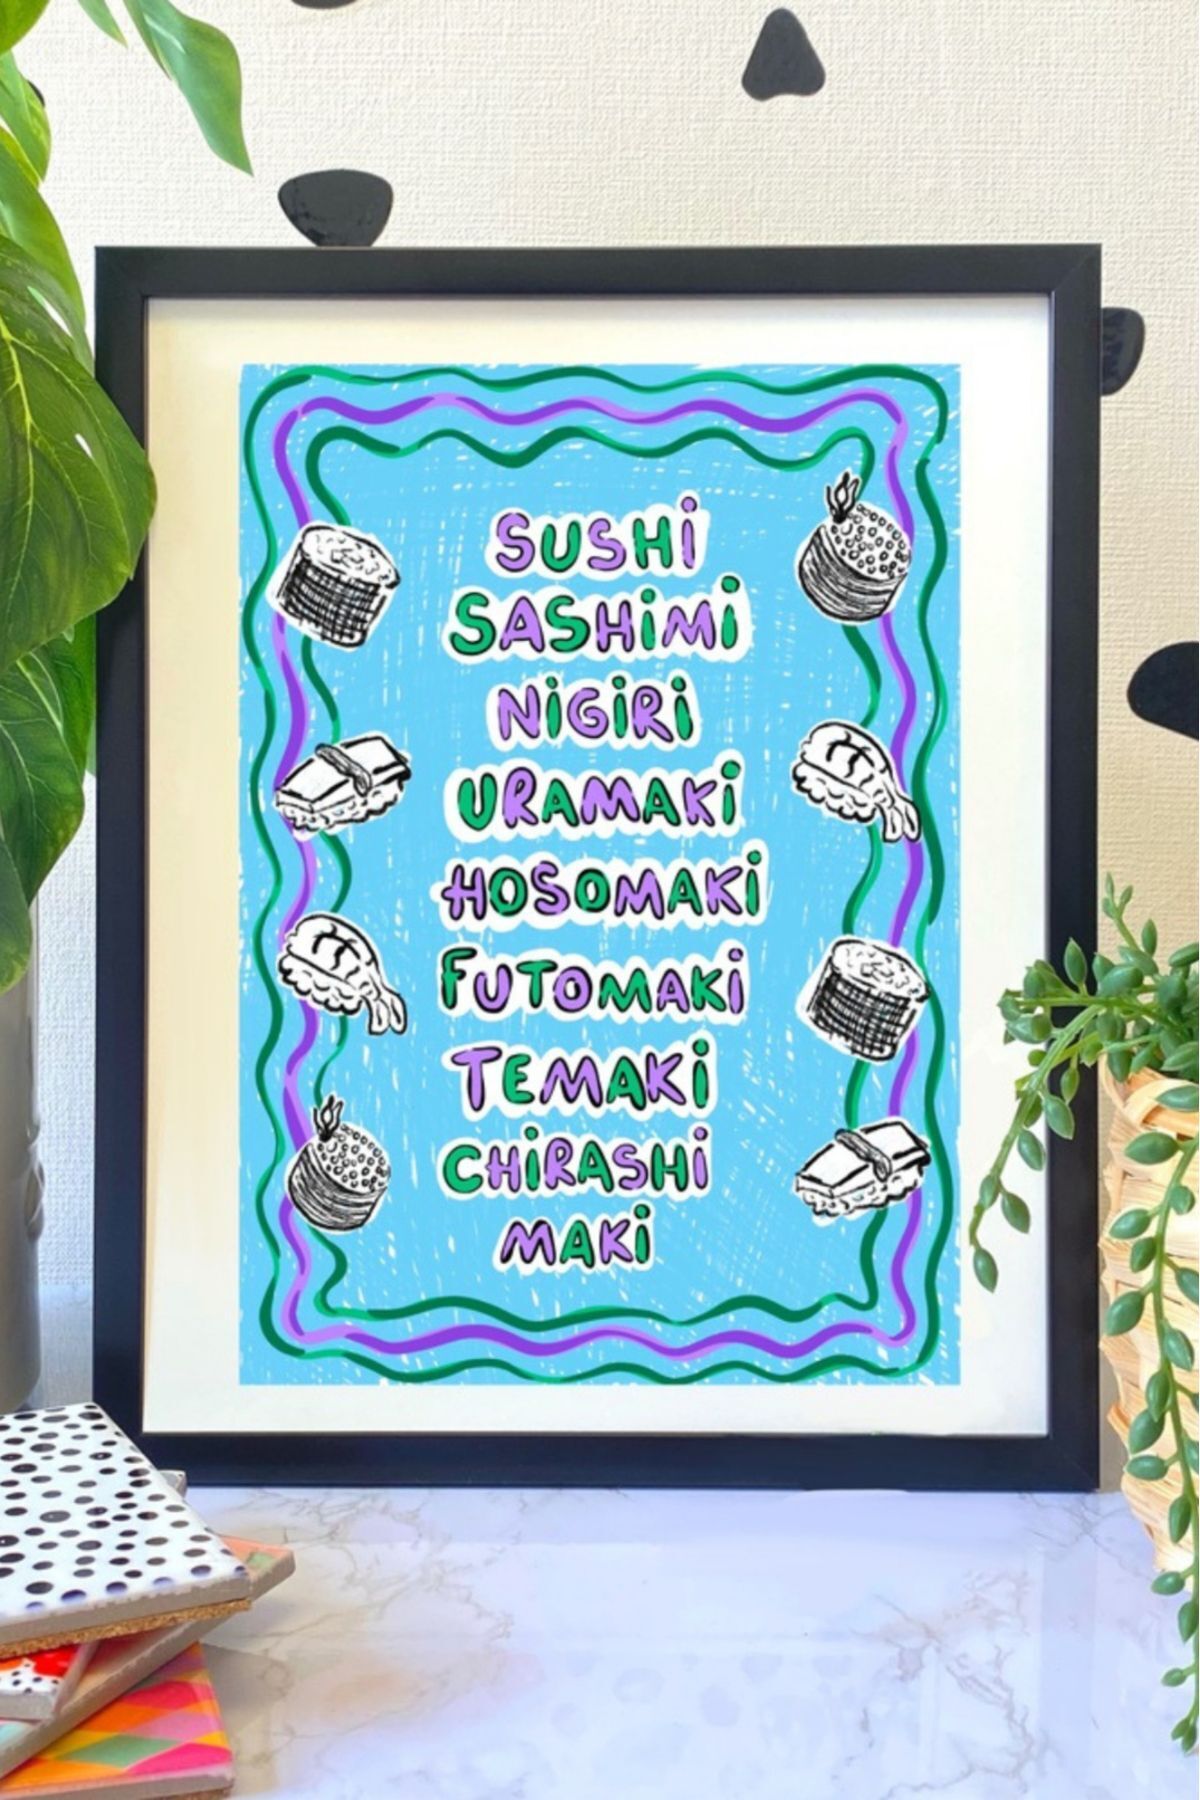 SUSHi
SASHiMi
NiGiRi
URAMAKi
HOSOMAKi
FUTOMAKi
TEMAKi
CHiRASHi
MAKi